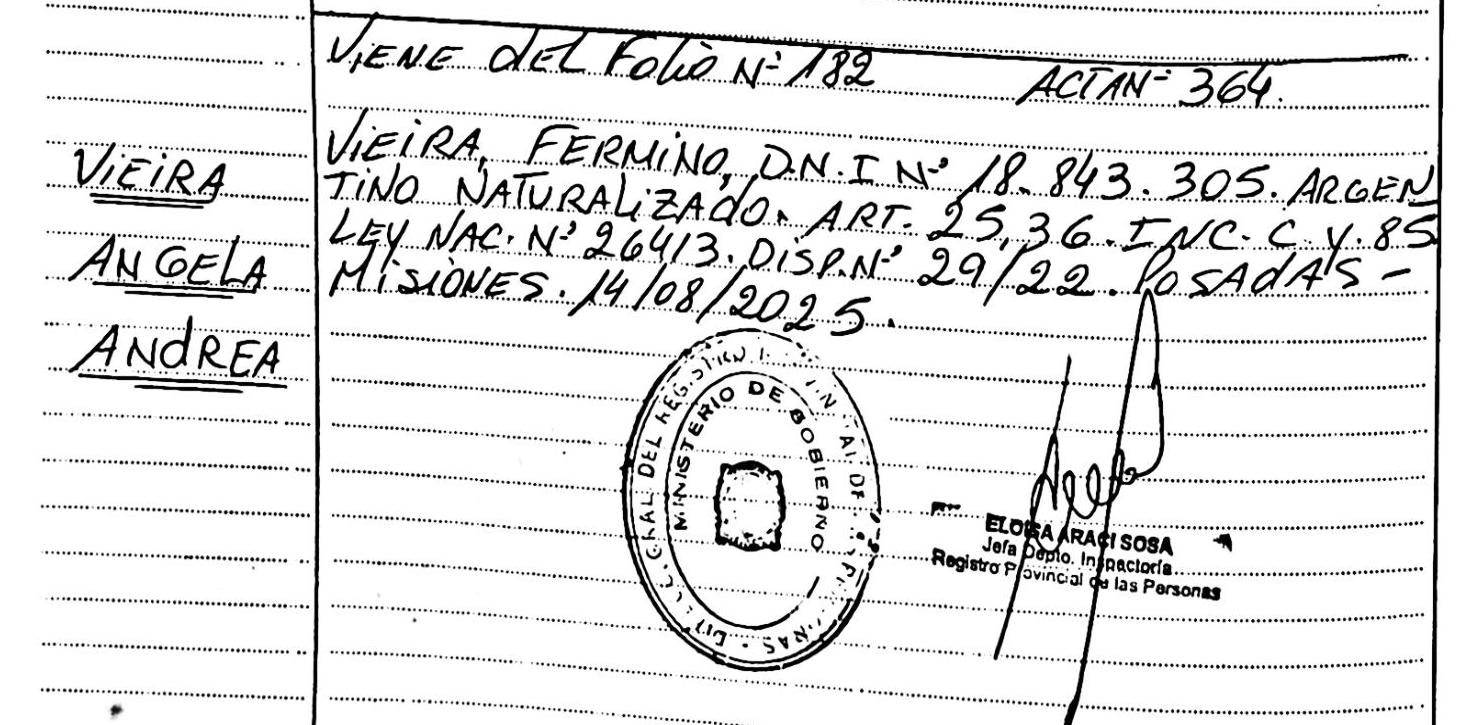 VIENE dEL FOLIO Nº 182 ACTA Nº 364.
VIEIRA
ANGELA
ANdREA
VIEIRA, FERMINO, D.N.I Nº 18.843.305. ARGEN
TINO NATURALIZADO. ART. 25,36. INC. C Y. 85
LEY NAC. Nº 26413. DISP. Nº 29/22. POSADAS -
MISIONES. 14/08/2025.
GRAL DEL REGISTRO
MINISTERIO DE GOBIERNO
ELOISA ARACI SOSA
Jefa Depto. Inspectoría
Registro Provincial de las Personas